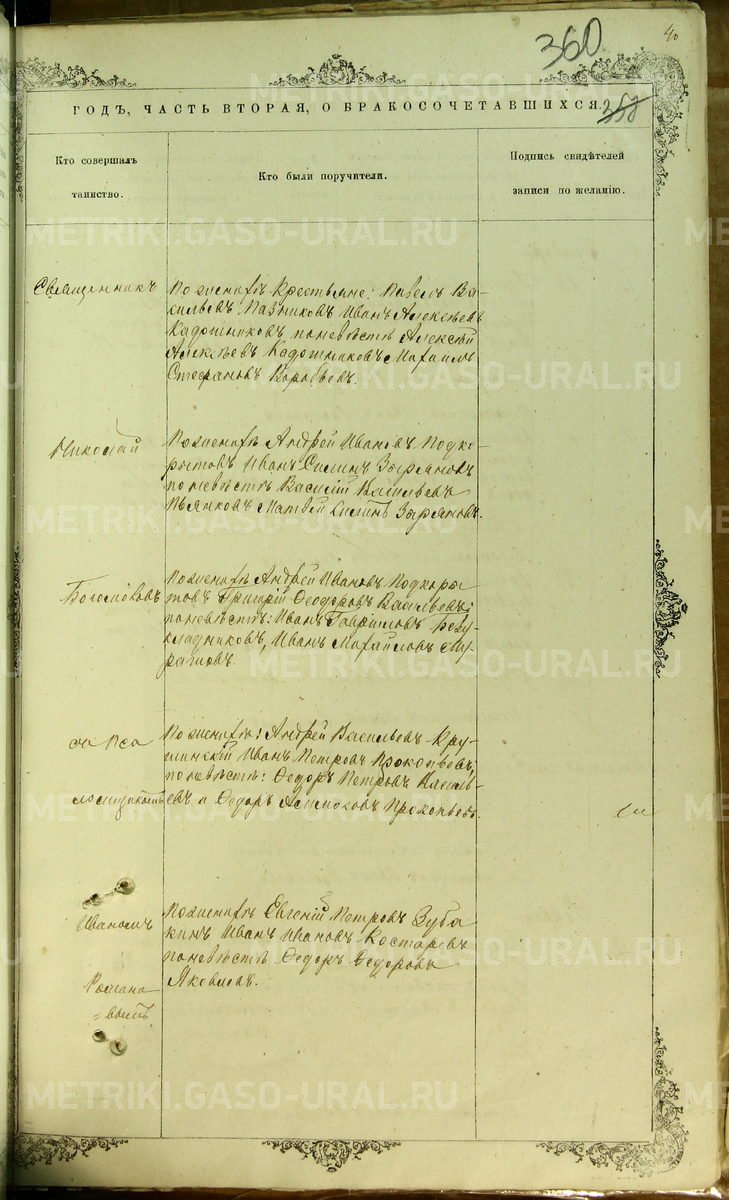 40
360
358
ГОДЪ, ЧАСТЬ ВТОРАЯ, О БРАКОСОЧЕТАВШИХСЯ.
Кто совершалъ
таинство.
Кто были поручители.
Подпись свидѣтелей
записи по желанію.
Священникъ
По женихѣ Крестьяне: Павелъ Ва-
сильевъ Иванъ Алексѣевъ
Кадошниковъ по невѣстѣ Алексѣй
Алексѣевъ Кадошниковъ Михаилъ
Стефановъ Воробьевъ.
Николай
По женихѣ Андрей Ивановъ Подко-
рытовъ Иванъ Силинъ Зыряновъ
по невѣстѣ Василій Васильевъ
Пьянковъ Матвѣй Силинъ Зыряновъ.
Богомоловъ
По женихѣ Андрей Ивановъ Подкоры
товъ Григорій Феодоровъ Васильевъ;
по невѣстѣ: Иванъ Гавриловъ Безу-
кладниковъ, Иванъ Михайловъ Му-
рзиковъ
съ Пса
ломщикомъ
По женихѣ: Андрей Васильевъ Кру-
тинскій Иванъ Петровъ Прокопьевъ;
по невѣстѣ: Федоръ Петровъ Василь-
евъ и Федоръ Прокопьевъ.
Иваномъ
Романо
=вымъ
По женихѣ Евгеній Петровъ Зуба
кинъ Иванъ Ивановъ Костаревъ
по невѣстѣ Федоръ Федоровъ
Яковлевъ.
METRIKI.GASO-URAL.RU